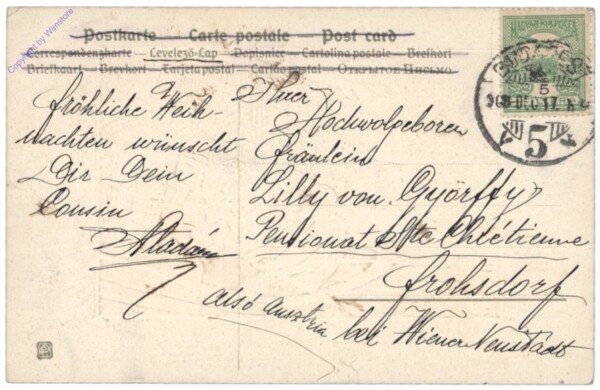 Copyright by Wienstore
Postkarte — Carte postale — Post card
Correspondenzkarte — Levelező-Lap — Dopisnice — Cartolina postale — Brefkort
Briefkaart — Brevkort — Tarjeta postal — Cartão postal — Открытое Письмо
MAGYAR KIR. POSTA
BUDAPEST
5
DEC 17
5
fröhliche Weih-
nachten wünscht
Dir Dein
Cousin
Aladár
Ihrer
Hochwolgeboren
Fräulein
Lilly von Györffy
Pensionat Ste Chrétienne
Frohsdorf
bei Wiener Neustadt
alsó Ausztria